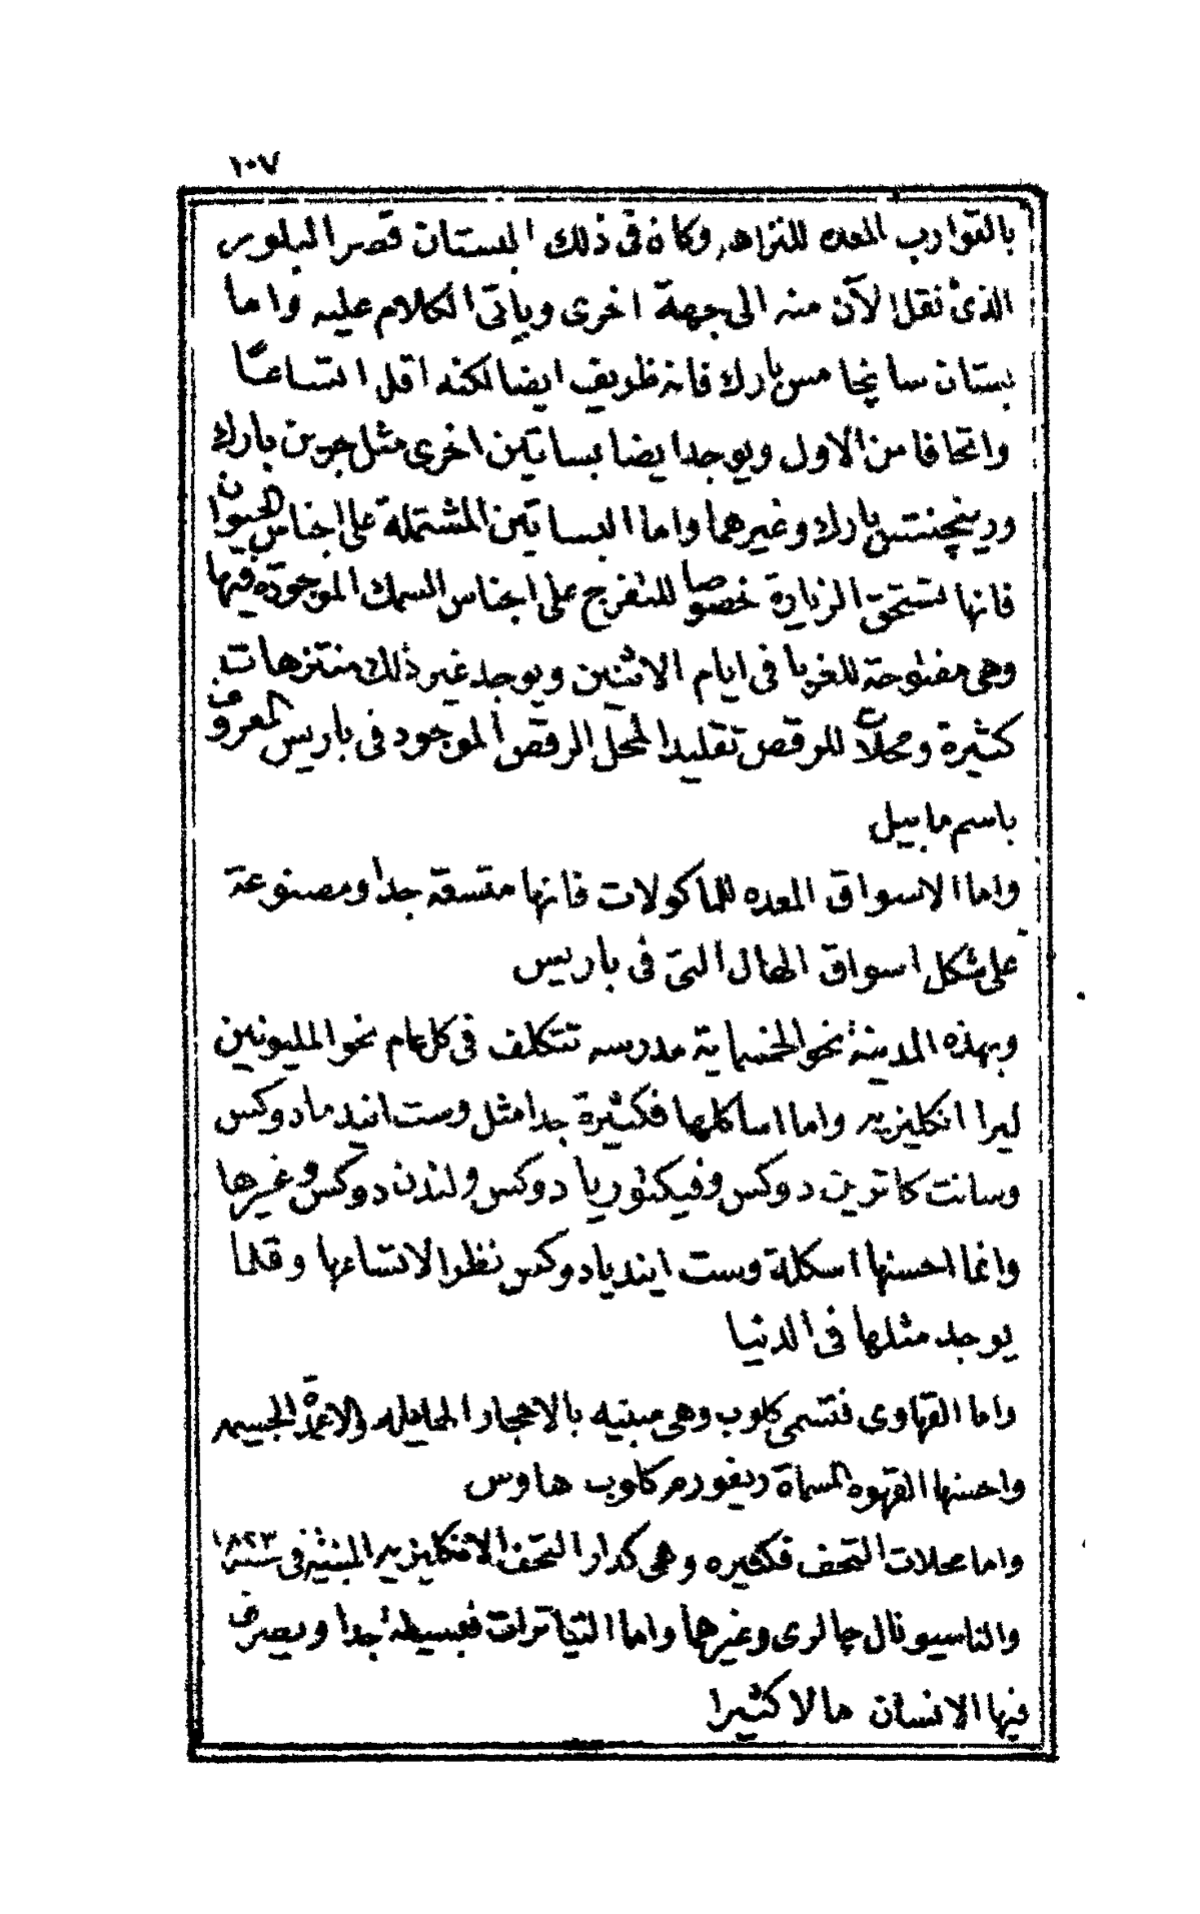 ١٠٧
بالقوارب المعده للنزاهه وكان فى ذلك البستان قصر البلور
الذى نقل الآن منه الى جهة اخرى ويأتى الكلام عليه واما
بستان سانجامس بارك فانه ظريف ايضا لكنه اقل اتساعًا
واتحافا من الاول ويوجد ايضا بساتين اخرى مثل جرين بارك
وريجنتس بارك وغيرهما واما البساتين المشتملة على اجناس الحيوان
فانها تستحق الزيارة خصوصا للتفرج على اجناس السمك الموجودة فيها
وهى مفتوحة للغربا فى ايام الاثنين ويوجد غير ذلك منتزهات
كثيرة ومحلات للرقص تقليدا لمحل الرقص الموجود فى باريس المعروف
باسم مابيل
واما الاسواق المعده للماكولات فانها متسقة جدا ومصنوعة
على شكل اسواق الهال التى فى باريس
وبهذه المدينة نحو الخمسماية مدرسه تتكلف فى كل عام نحو المليونين
ليرا انكليزيه واما اساكلها فكثيرة جدا مثل وست انيد مادوكس
وسانت كاترين دوكس وفيكتوريا دوكس ولندن دوكس وغيرها
وانما احسنها اسكلة وست اينديادوكس نظرا لاتساعها وقلما
يوجد مثلها فى الدنيا
واما القهاوى فتسمى كلوب وهى مبنيه بالاحجار الهايله والاعمدة الجسيمه
واحسنها القهوه المسماة ريفورم كلوب هاوس
واما محلات التحف فكثيره وهى كدار التحف الانكليزيه المبنية فى سنة ١٨٢٣
والناسيونال جالرى وغيرهما واما التياترات فبسيطة جدا ويصرف
فيها الانسان مالا كثيرا